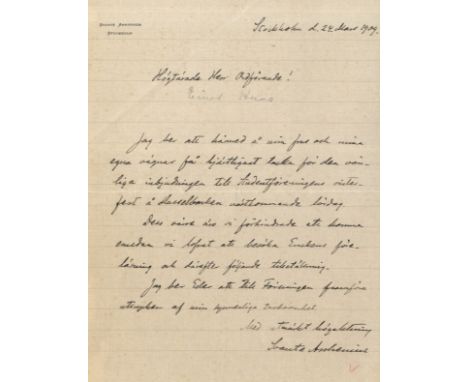 SVANTE ARRHENIUS
STOCKHOLM
Stockholm d. 24 Mars 1909.
Högtärade Herr Ordförande!
Einar
Jag ber att härmed å min fru och mina
egna vägnar få hjärtligast tacka för den vän-
liga inbjudningen till Studentföreningens vinter-
fest å Hasselbacken nästkommande lördag.
Dess värre äro vi förhindrade att komma
emedan vi lofvat att besöka Euckens före-
läsning och därefter följande tillställning.
Jag ber Eder att till Föreningen framföra
uttrycken af min synnerliga tacksamhet.
Med utmärkt högaktning
Svante Arrhenius